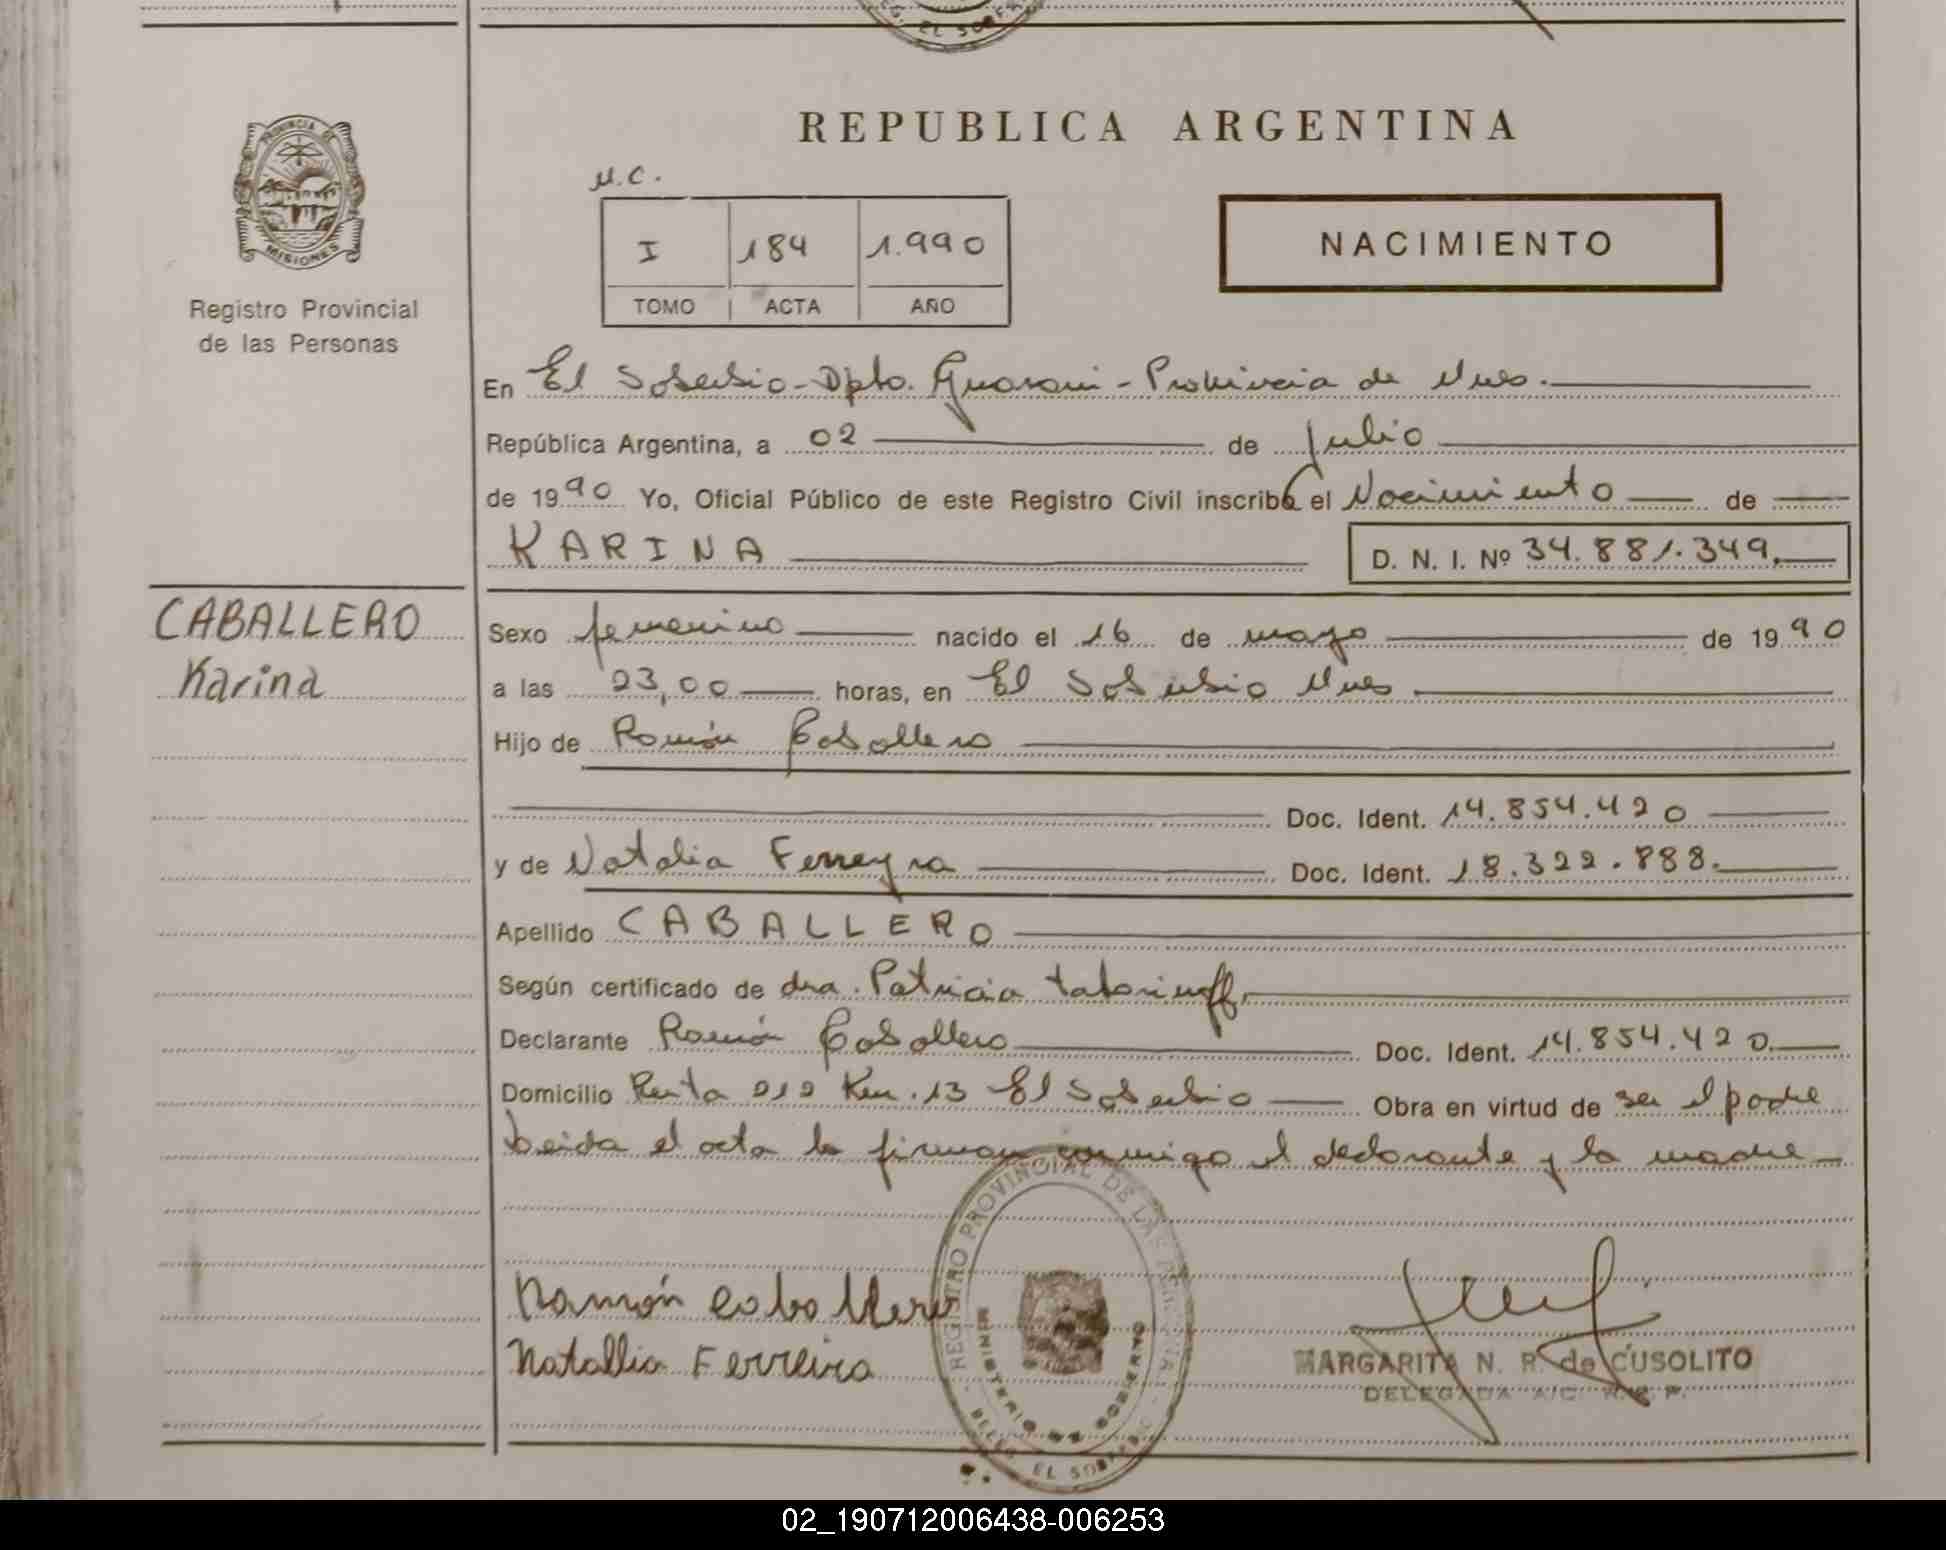 EL SOBER
PROVINCIA DE
MISIONES
Registro Provincial
de las Personas
REPUBLICA ARGENTINA
M.C.
I 184 1.990
TOMO ACTA AÑO
NACIMIENTO
En El Soberbio - Dpto. Guarani - Provincia de Mnes.
República Argentina, a 02 de Julio
de 1990 Yo, Oficial Público de este Registro Civil inscribo el Nacimiento de
KARINA D. N. I. Nº 34.881.349.
CABALLERO
Karina
Sexo femenino nacido el 16 de mayo de 1990
a las 23,00 horas, en El Soberbio Mnes
Hijo de Ramón Caballero
Doc. Ident. 14.854.420
y de Natalia Ferreyra Doc. Ident. 18.322.888.
Apellido CABALLERO
Según certificado de dra. Patricia
Declarante Ramón Caballero Doc. Ident. 14.854.420.
Domicilio Ruta 212 Km. 13 El Soberbio Obra en virtud de ser el padre
Leida el acta la firman conmigo el declarante y la madre
Ramón Caballero
Natallia Ferreira
REGISTRO PROVINCIAL DE LAS PERSONAS
MINISTERIO DE GOBIERNO
DELEG. EL SOBERBIO
MARGARITA N. R. de CUSOLITO
DELEGADA A/C R. P. P.
02_190712006438-006253